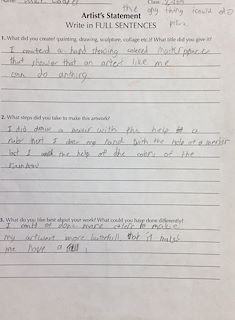 the only thing i could do
Class
plus
Artist's Statement
Write in FULL SENTENCES
1. What did you create? (painting, drawing, sculpture, collage etc.)? What title did you give it?
I created a hand showing colored
that showes that an artest like me
can do anthing
2. What steps did you take to make this artwork?
I did draw a with the help of a
ruber then I draw my hand with the help of a
but I used the help of the colors of the
Rainbow
3. What do you like best about your work? What could you have done differently?
I could of done more colers to make
my artwork more
me have a